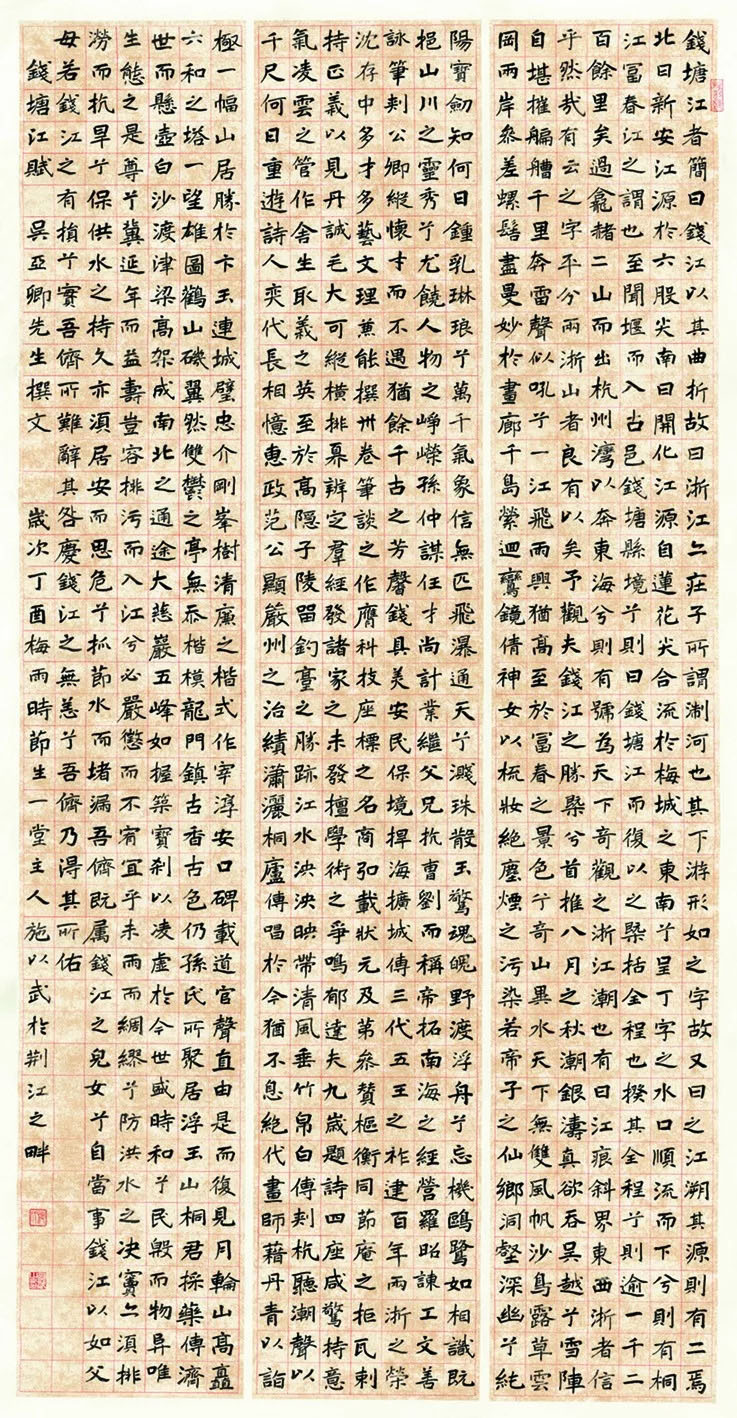 錢塘江者簡曰錢江以其曲折故曰浙江亦莊子所謂淛河也其下游形如之字故又曰之江溯其源則有二焉
北曰新安江源於六股尖南曰開化江源自蓮花尖合流於梅城之東南兮呈丁字之水口順流而下兮則有桐
江富春江之謂也至聞堰而入古邑錢塘縣境兮則曰錢塘江而復以之槩括全程也揆其全程兮則逾一千二
百餘里矣過龕赭二山而出杭州灣以奔東海兮則有號為天下奇觀之浙江潮也有曰江痕斜界東西浙者信
乎然哉有云之字平分兩浙山者良有以矣予觀夫錢江之勝槩兮首推八月之秋潮銀濤真欲吞吳越兮雪陣
自堪摧艑艚千里奔雷聲似吼兮一江飛雨興猶高至於富春之景色兮奇山異水天下無雙風帆沙鳥露草雲
岡兩岸參差螺髻盡曼妙於畫廊千島縈迴鸞鏡倩神女以梳妝絕塵煙之污染若帝子之仙鄉洞壑深幽兮純
陽寶劍知何日鍾乳琳琅兮萬千氣象信無匹飛瀑通天兮濺珠散玉驚魂魄野渡浮舟兮忘機鷗鷺如相識既
挹山川之靈秀兮尤饒人物之崢嶸孫仲謀任才尚計業繼父兄抗曹劉而稱帝拓南海之經營羅昭諫工文善
詠筆刺公卿縱懷才而不遇猶餘千古之芳馨錢具美安民保境捍海擴城傳三代五王之祚建百年兩浙之榮
沈存中多才多藝文理兼能撰卅卷筆談之作膺科技座標之名商弘載狀元及第參贊樞衡同節庵之拒瓦剌
持正義以見丹誠毛大可縱橫排奡辨定羣經發諸家之未發擅學術之爭鳴郁達夫九歲題詩四座咸驚持意
氣凌雲之管作舍生取義之英至於高隱子陵留釣臺之勝跡江水泱泱映帶清風垂竹帛白傅刺杭聽潮聲以
千尺何日重遊詩人奕代長相憶惠政范公顯嚴州之治績瀟灑桐廬傳唱於今猶不息絕代畫師藉丹青以詣
極一幅山居勝於卞玉連城璧忠介剛峯樹清廉之楷式作宰淳安口碑載道官聲直由是而復見月輪山高矗
六和之塔一望雄圖鸛山磯翼然雙鬱之亭無忝楷模龍門鎮古香古色仍孫氏所聚居浮玉山桐君採藥傳濟
世而懸壺白沙渡津梁高架成南北之通途大慈巖五峰如握築寶剎以凌虛於今世盛時和兮民殷而物阜唯
生態之是尊兮冀延年而益壽豈容排污而入江兮必嚴懲而不宥宜乎未雨而綢繆兮防洪水之決竇亦須排
澇而抗旱兮保供水之持久亦須居安而思危兮抓節水而堵漏吾儕既屬錢江之兒女兮自當事錢江以如父
母若錢江之有損兮實吾儕所難辭其咎慶錢江之無恙兮吾儕乃得其所佑
錢塘江賦 吳亞卿先生撰文 歲次丁酉梅雨時節生一堂主人施以武於荆江之畔